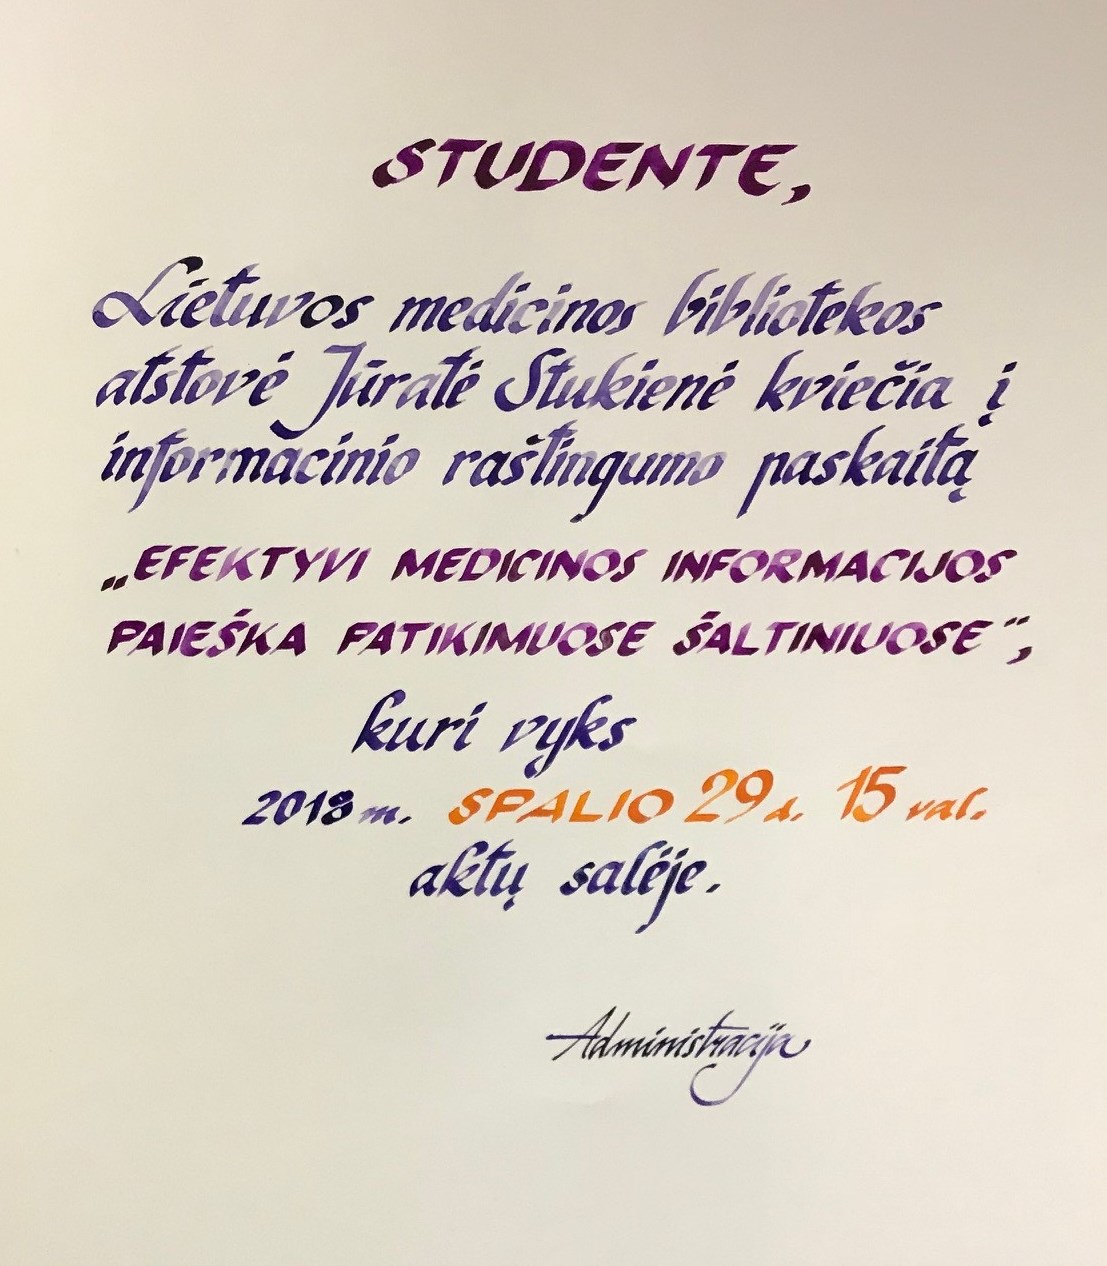 STUDENTE,
Lietuvos medicinos bibliotekos
atstovė Jūratė Stukienė kviečia į
informacinio raštingumo paskaitą
„EFEKTYVI MEDICINOS INFORMACIJOS
PAIEŠKA PATIKIMUOSE ŠALTINIUOSE“,
kuri vyks
2018 m. SPALIO 29 d. 15 val.
aktų salėje.
Administracija